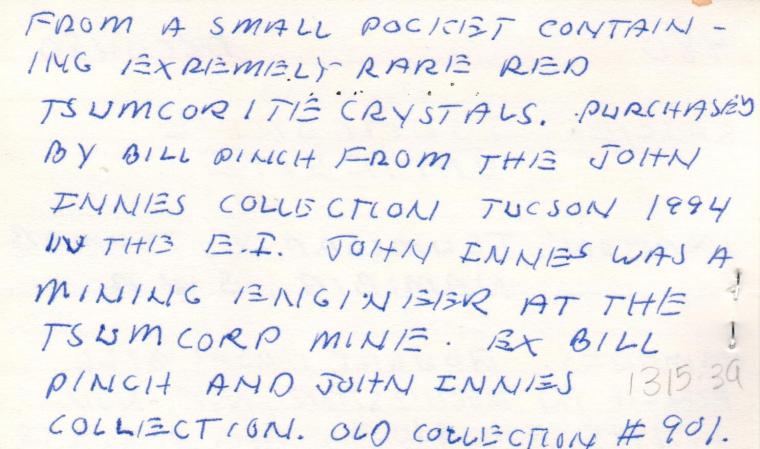 FROM A SMALL POCKET CONTAIN -
ING EXREMELY RARE RED
TSUMCORITE CRYSTALS. PURCHASED
BY BILL PINCH FROM THE JOHN
INNES COLLECTION TUCSON 1994
IN THE E.I. JOHN INNES WAS A
MINING ENGINEER AT THE
TSUMCORP MINE. EX BILL
PINCH AND JOHN INNES 1315.39
COLLECTION. OLD COLLECTION # 901.